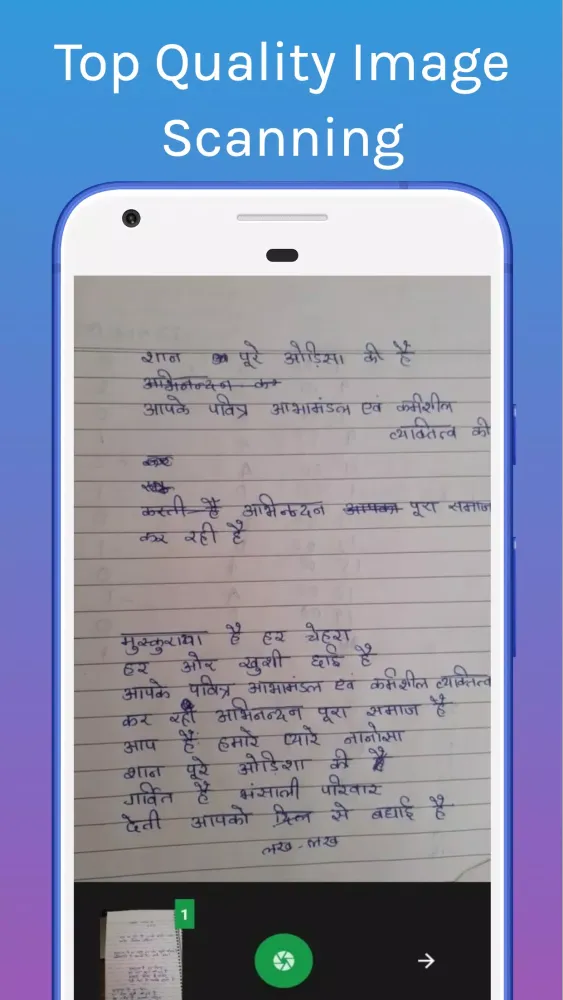 Top Quality Image
Scanning
शान पूरे ओड़िसा की है
अभिनन्दन का
आपके पवित्र आभामंडल एवं कर्मशील
व्यक्तित्व की
करती है अभिनन्दन आपका पूरा समाज
कर रही है
मुस्कुराया है हर चेहरा
हर ओर खुशी छाई है
आपके पवित्र आभामंडल एवं कर्मशील व्यक्तित्व
कर रहा अभिनन्दन पूरा समाज है
आप हैं हमारे प्यारे नानोसा
शान पूरे ओड़िशा की है
गर्वित है भंसाली परिवार
देती आपको दिल से बधाई है
लख-लख
1